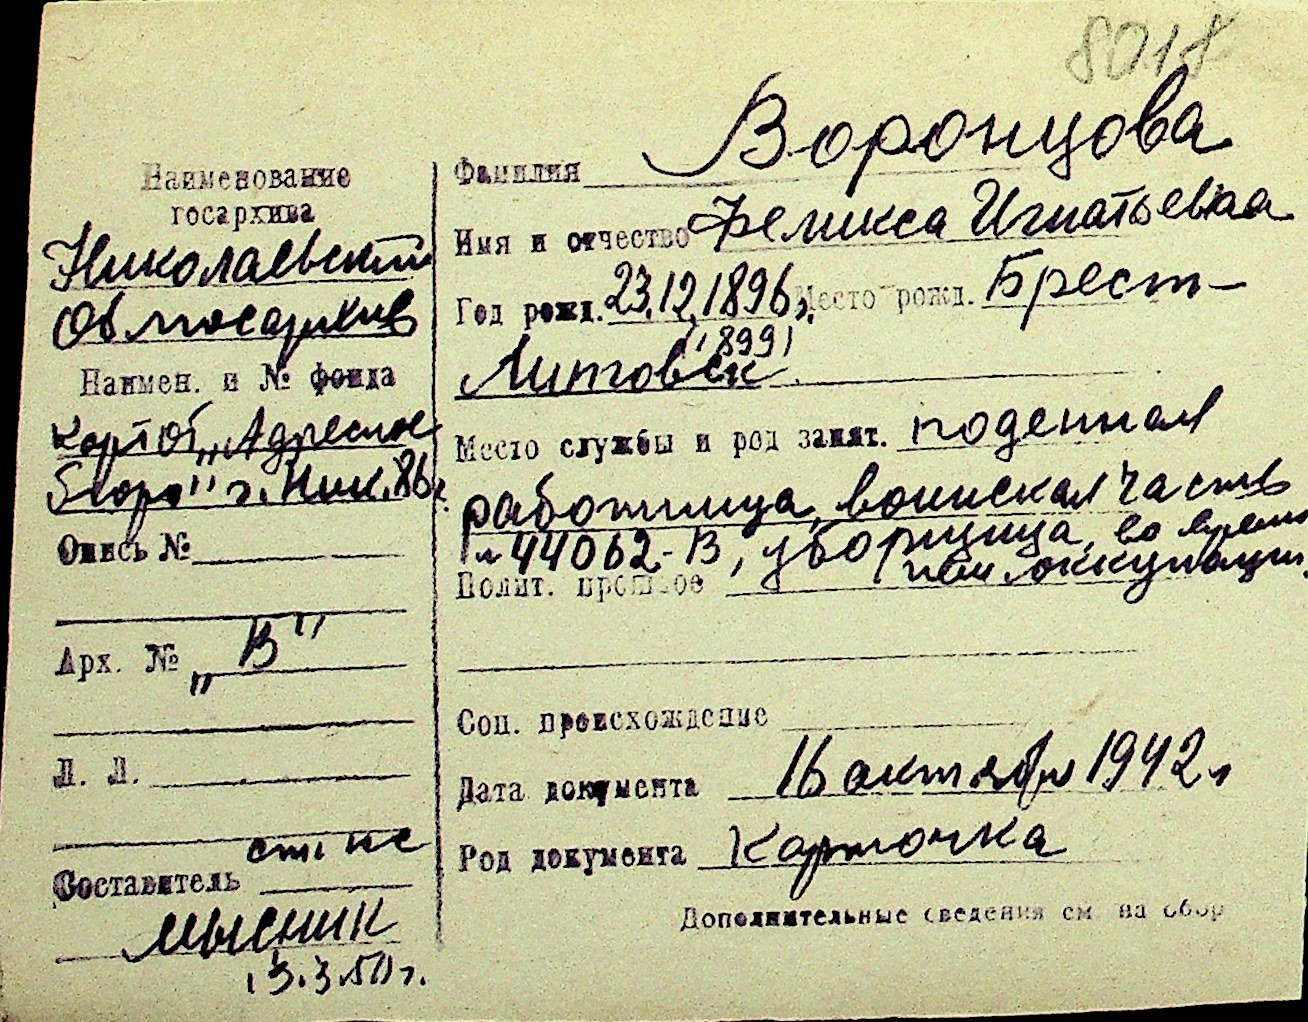 8018
Наименование
госархива
Николаевский
Облгосархив
Наимен. и № фонда
картот. „Адресное
бюро" г. Ник. 86
Опись №
Арх. № „В"
Л. Л.
ст. нс
Составитель
Мысник
13.3.50 г.
Фамилия Воронцова
Имя и отчество Феликса Игнатьевна
Год рожд. 23.12.1896, Место рожд. Брест-
(1899)
Литовск
Место службы и род занят. поденная
работница, воинская часть
44062-В, уборщица, во время
нем. оккупации.
Полит. прошлое
Соц. происхождение
Дата документа 16 октября 1942 г
Род документа Карточка
Дополнительные сведения см. на обор